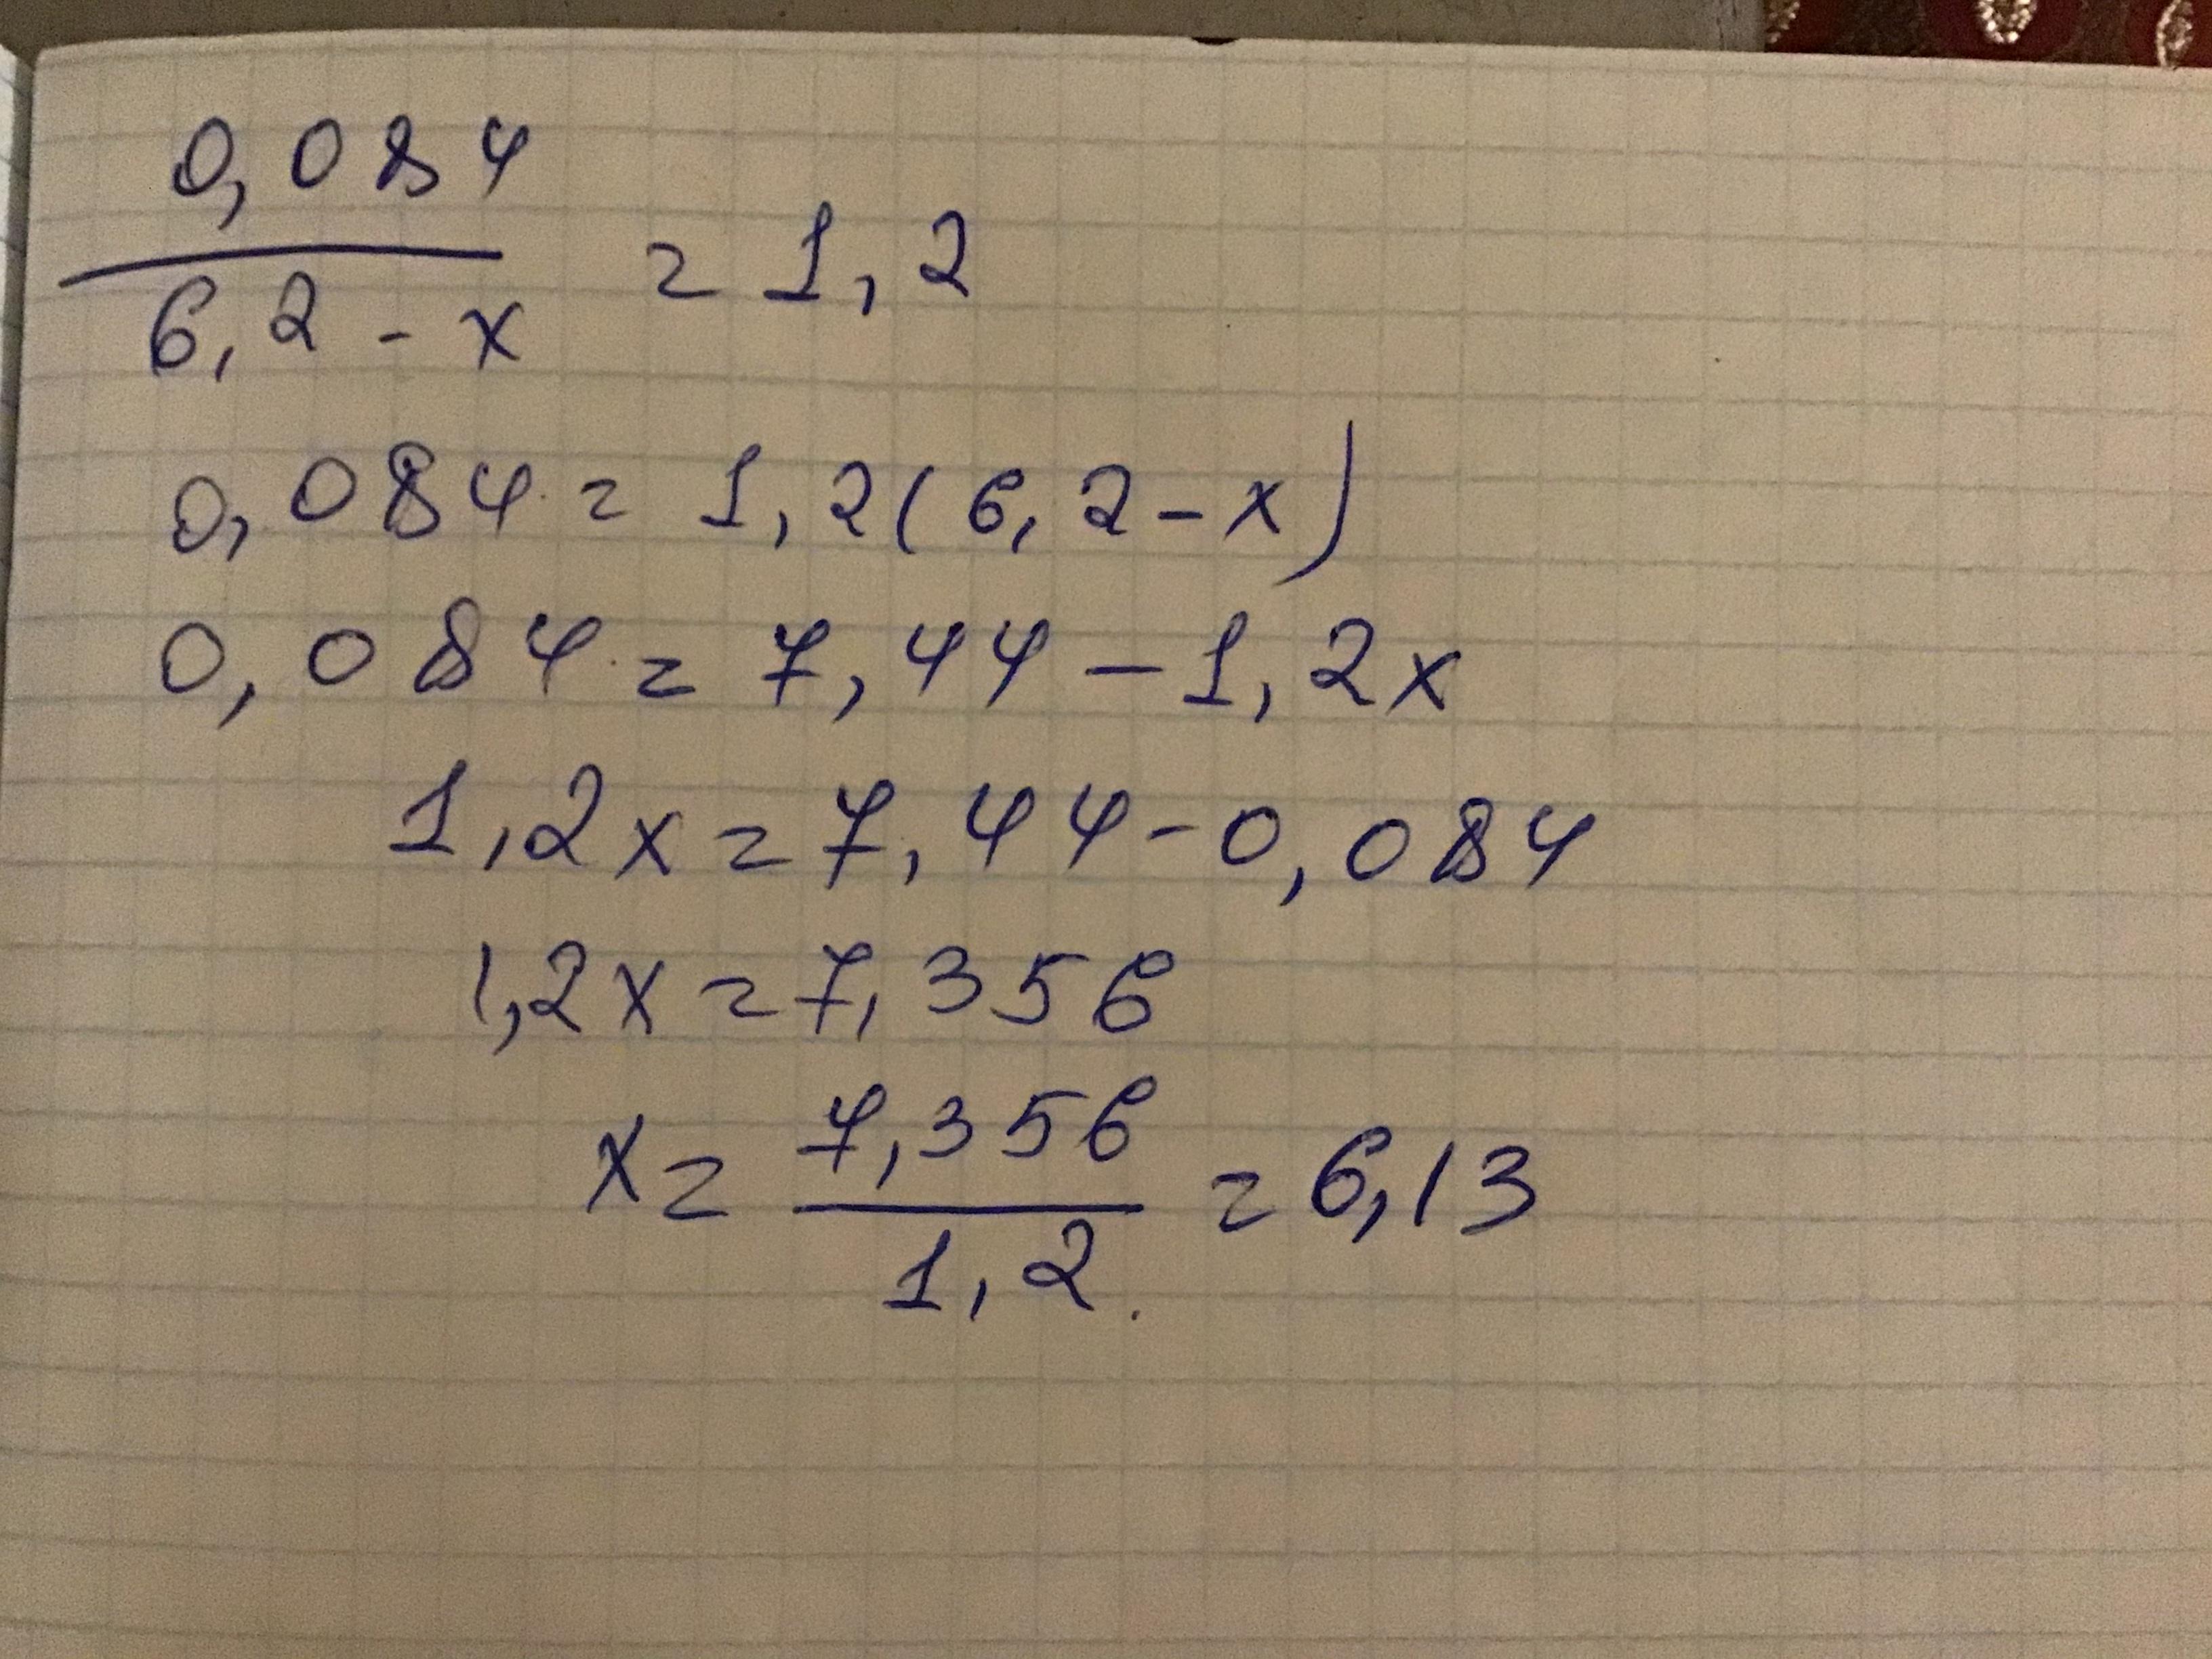 0,084
———— = 1,2
6,2 - x
0,084 = 1,2(6,2-x)
0,084 = 7,44-1,2x
1,2x=7,44-0,084
1,2x=7,356
x= 7,356/1,2 = 6,13